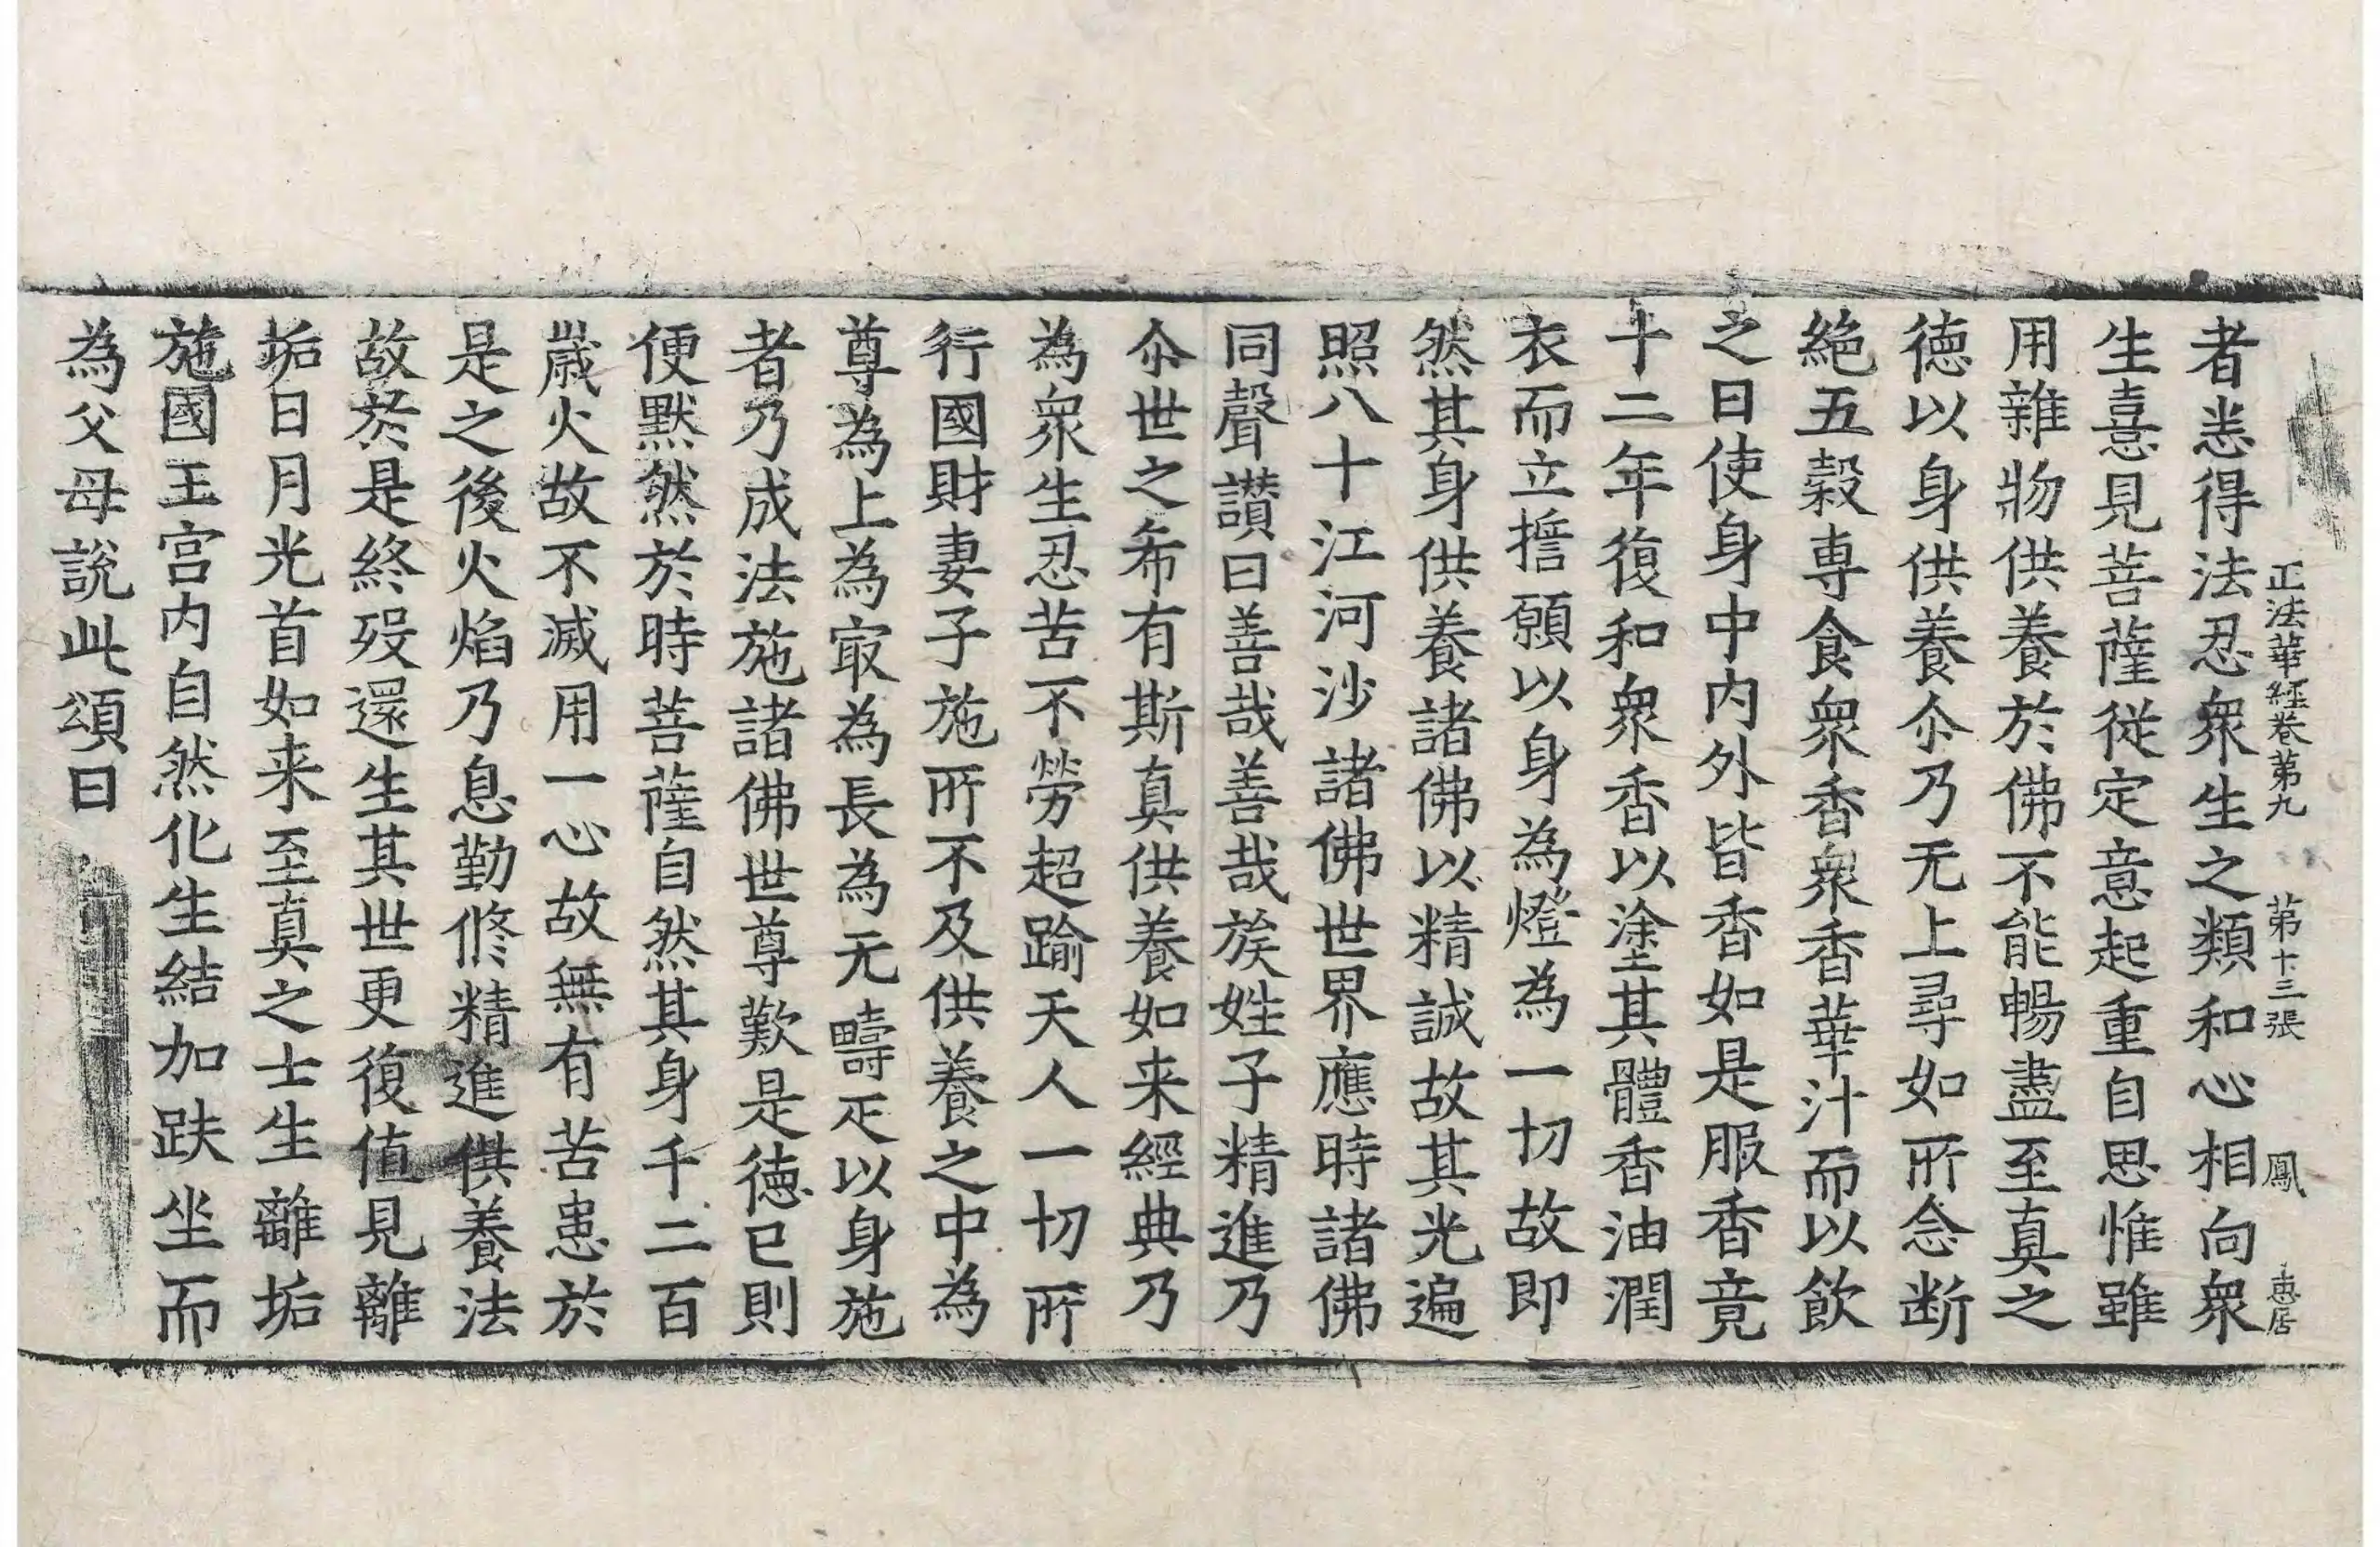 正法華經卷第九 第十三張 鳳 惠居
者悉得法忍衆生之類和心相向衆
生憙見菩薩從定意起重自思惟雖
用雜物供養於佛不能暢盡至真之
德以身供養尒乃无上尋如所念断
絶五糓専食衆香衆香華汁而以飲
之日使身中内外皆香如是服香竟
十二年復和衆香以塗其體香油潤
衣而立擔願以身為燈為一切故即
然其身供養諸佛以精誠故其光遍
照八十江河沙諸佛世界應時諸佛
同聲讃曰善哉善哉族姓子精進乃
尒世之希有斯真供養如来經典乃
為衆生忍苦不勞超踰天人一切所
行國財妻子施所不及供養之中為
尊為上為冣為長為无疇疋以身施
者乃成法施諸佛世尊歎是徳已則
便黙然於時菩薩自然其身千二百
歳火故不滅用一心故無有苦患於
是之後火焰乃息勤修精進供養法
故於是終歿還生其世更復值見離
垢日月光首如来至真之士生離垢
施國王宫内自然化生結加趺坐而
為父母説此頌曰